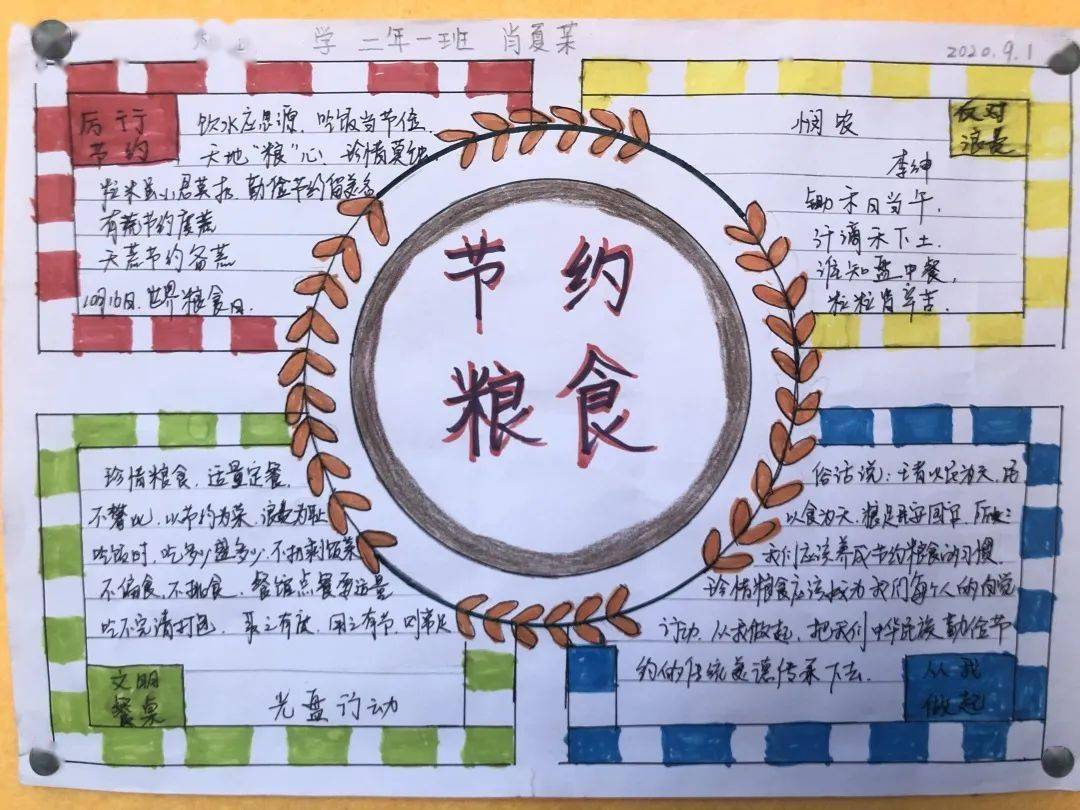 学 二年一班 肖夏菜
2020.9.1
厉行
节约
饮水应思源，吃饭当节位
天地“粮”心，珍惜莫
粒米虽小君莫扔，勤俭节约留美名
有荒节约度荒
无荒节约备荒
10月16日，世界粮食日.
反对
浪费
悯农
李绅
锄禾日当午，
汗滴禾下土.
谁知盘中餐，
粒粒皆辛苦.
节约
粮食
珍惜粮食，适量定餐，
不攀比，以节约为荣，浪费为耻
吃饭时，吃多少盛多少，不扔剩饭菜
不偏食，不挑食，餐馆点餐要适量
吃不完请打包，取之有度，用之有节，则常足
文明
餐桌
光盘行动
俗话说：王者以民为天，民
以食为天，粮足
我们应该养成节约粮食的习惯
珍惜粮食应该成为我们每个人的自觉
行动，从我做起，把我们中华民族勤俭节
约的传统美德传承下去.
从我
做起